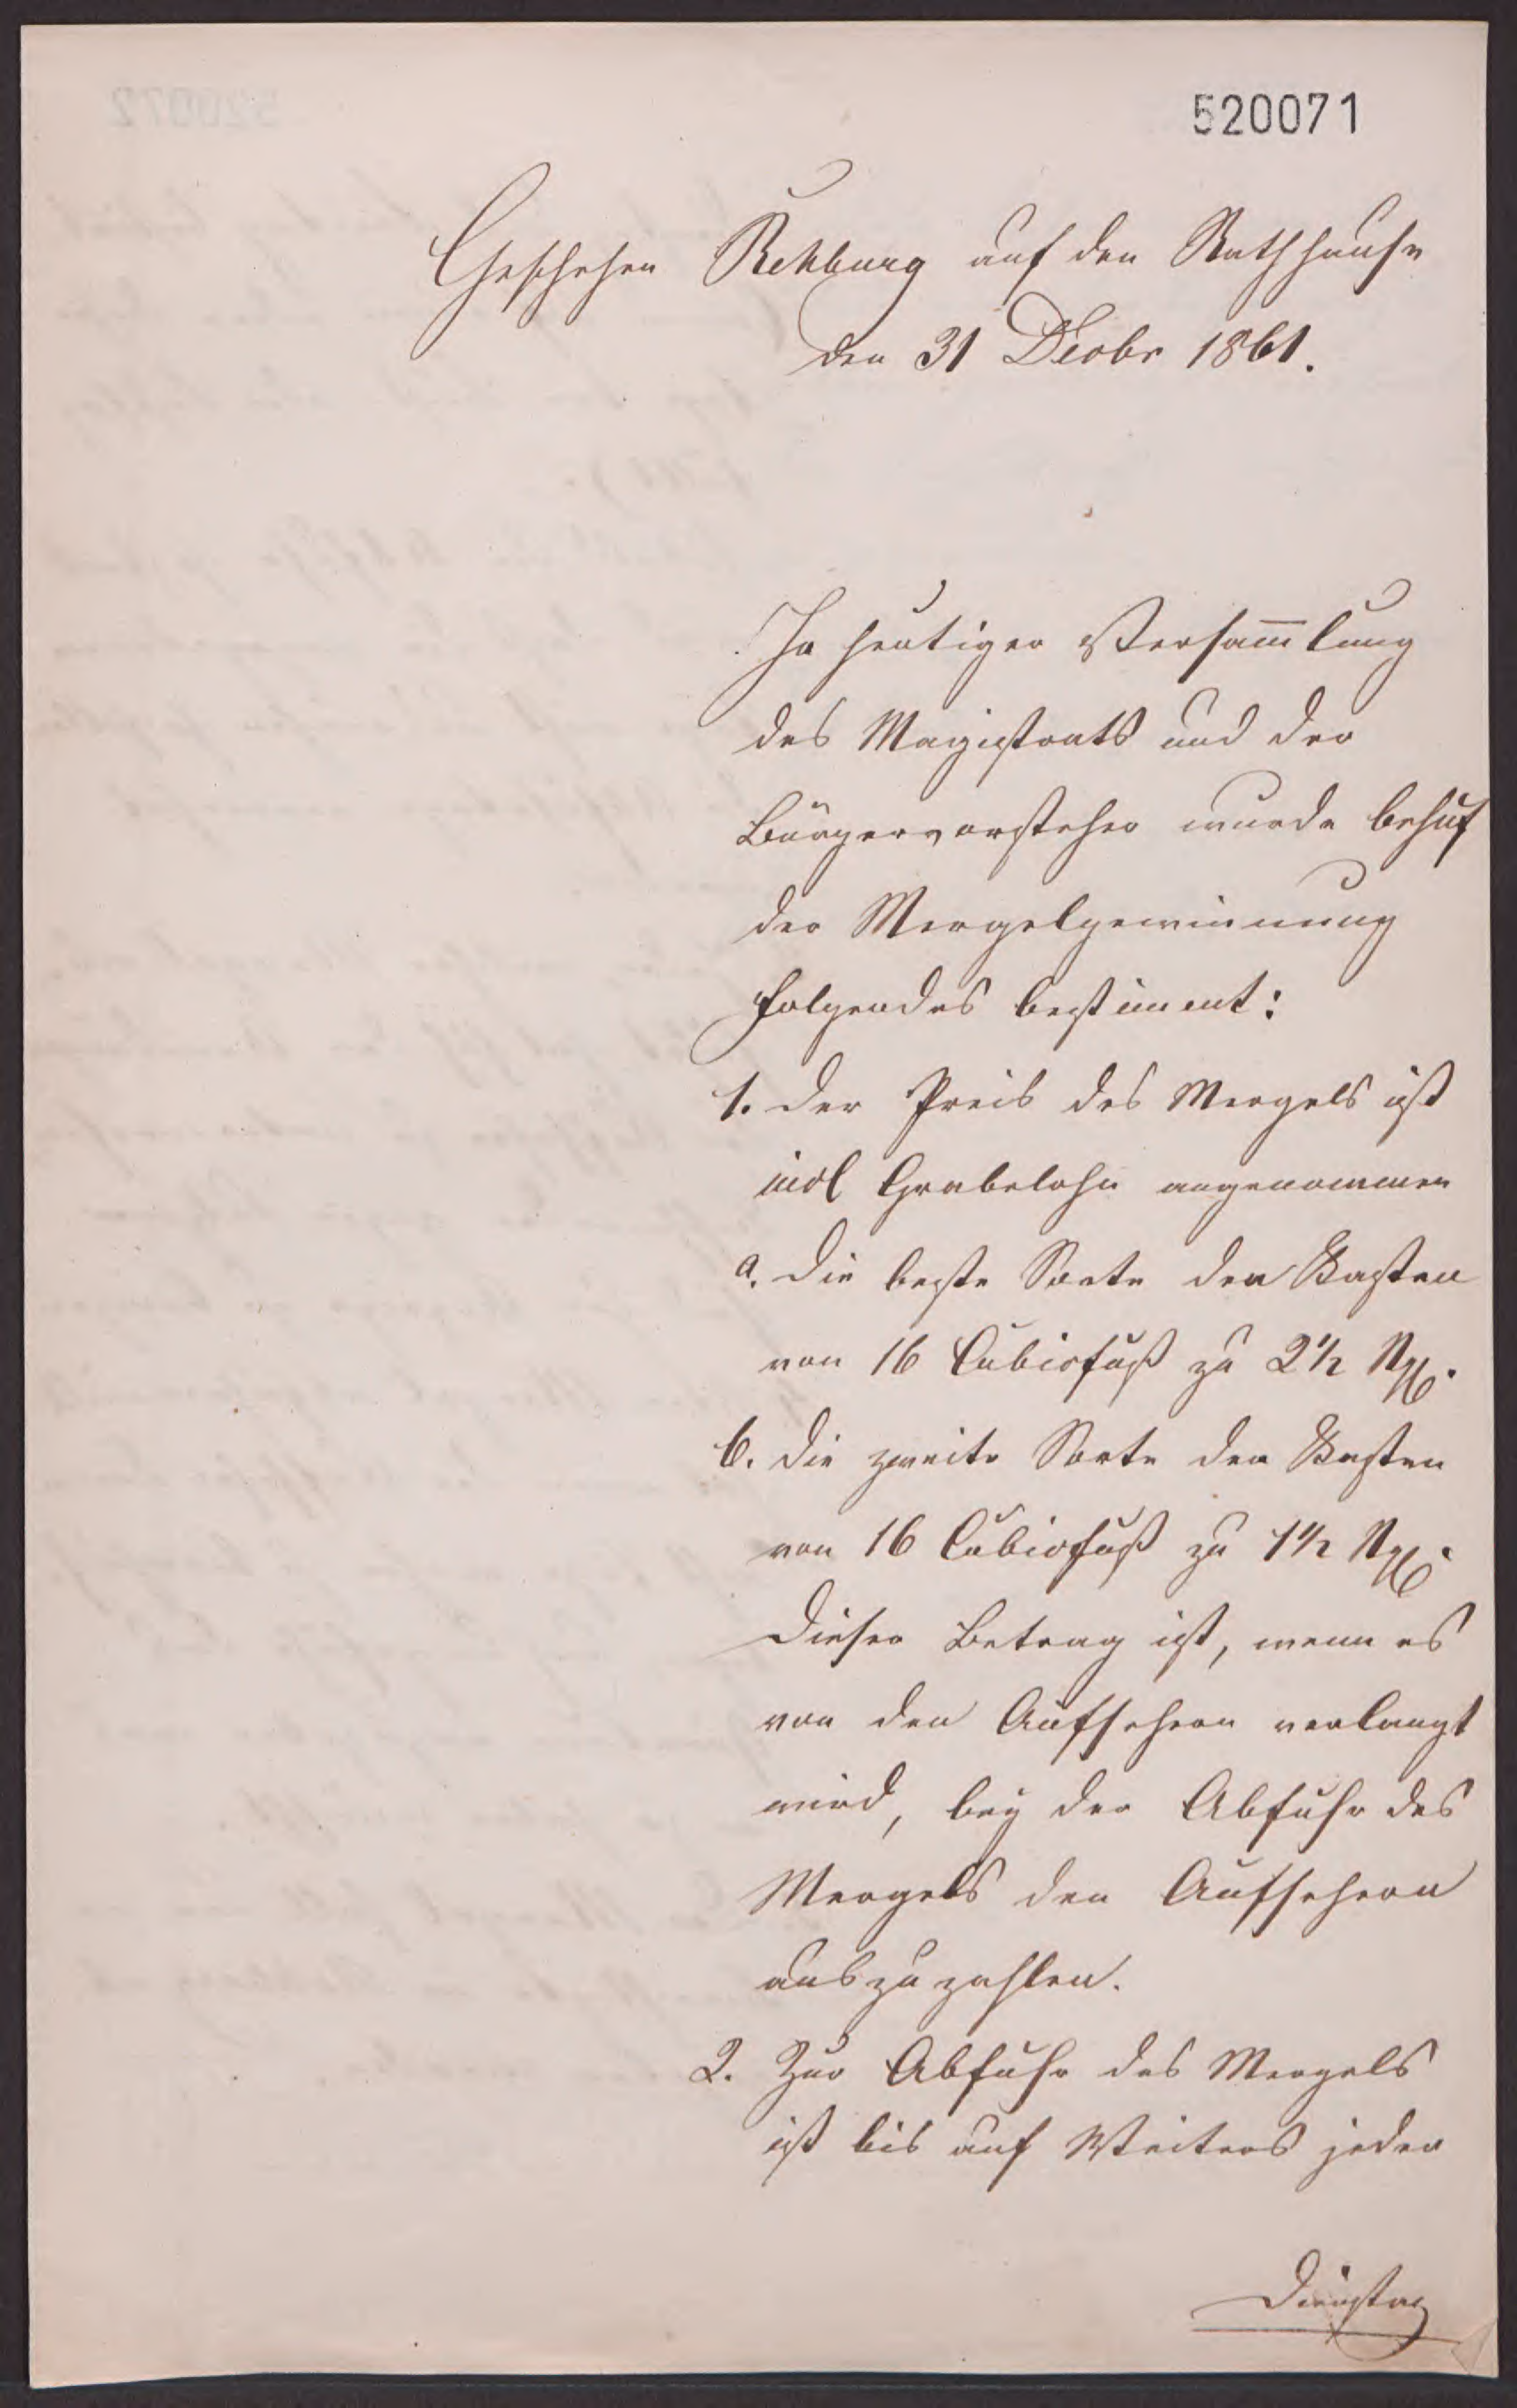 520071
Geschehen Rehburg auf den Rathhause
den 31 Decbr 1861.
In heutiger Versam̅lung
des Magistrats und der
Bürgervorsteher wurde behuf
der Mergelgewinnung
folgendes bestimmt:
1. der Preis des Mergels ist
incl Grabelohn angenommen
a. die beste Sorte den Kasten
von 16 Cubicfuß zu 2 1/2 Ngr.
b. die zweite Sorte den Kasten
von 16 Cubicfuß zu 1 1/2 Ngr.
Dieser Betrag ist, wenn es
von den Aufsehern verlangt
wird, bey der Abfuhr des
Mergels den Aufsehern
auszuzahlen.
2. Zur Abfuhr des Mergels
ist bis auf Weiteres jeder
Dienstag